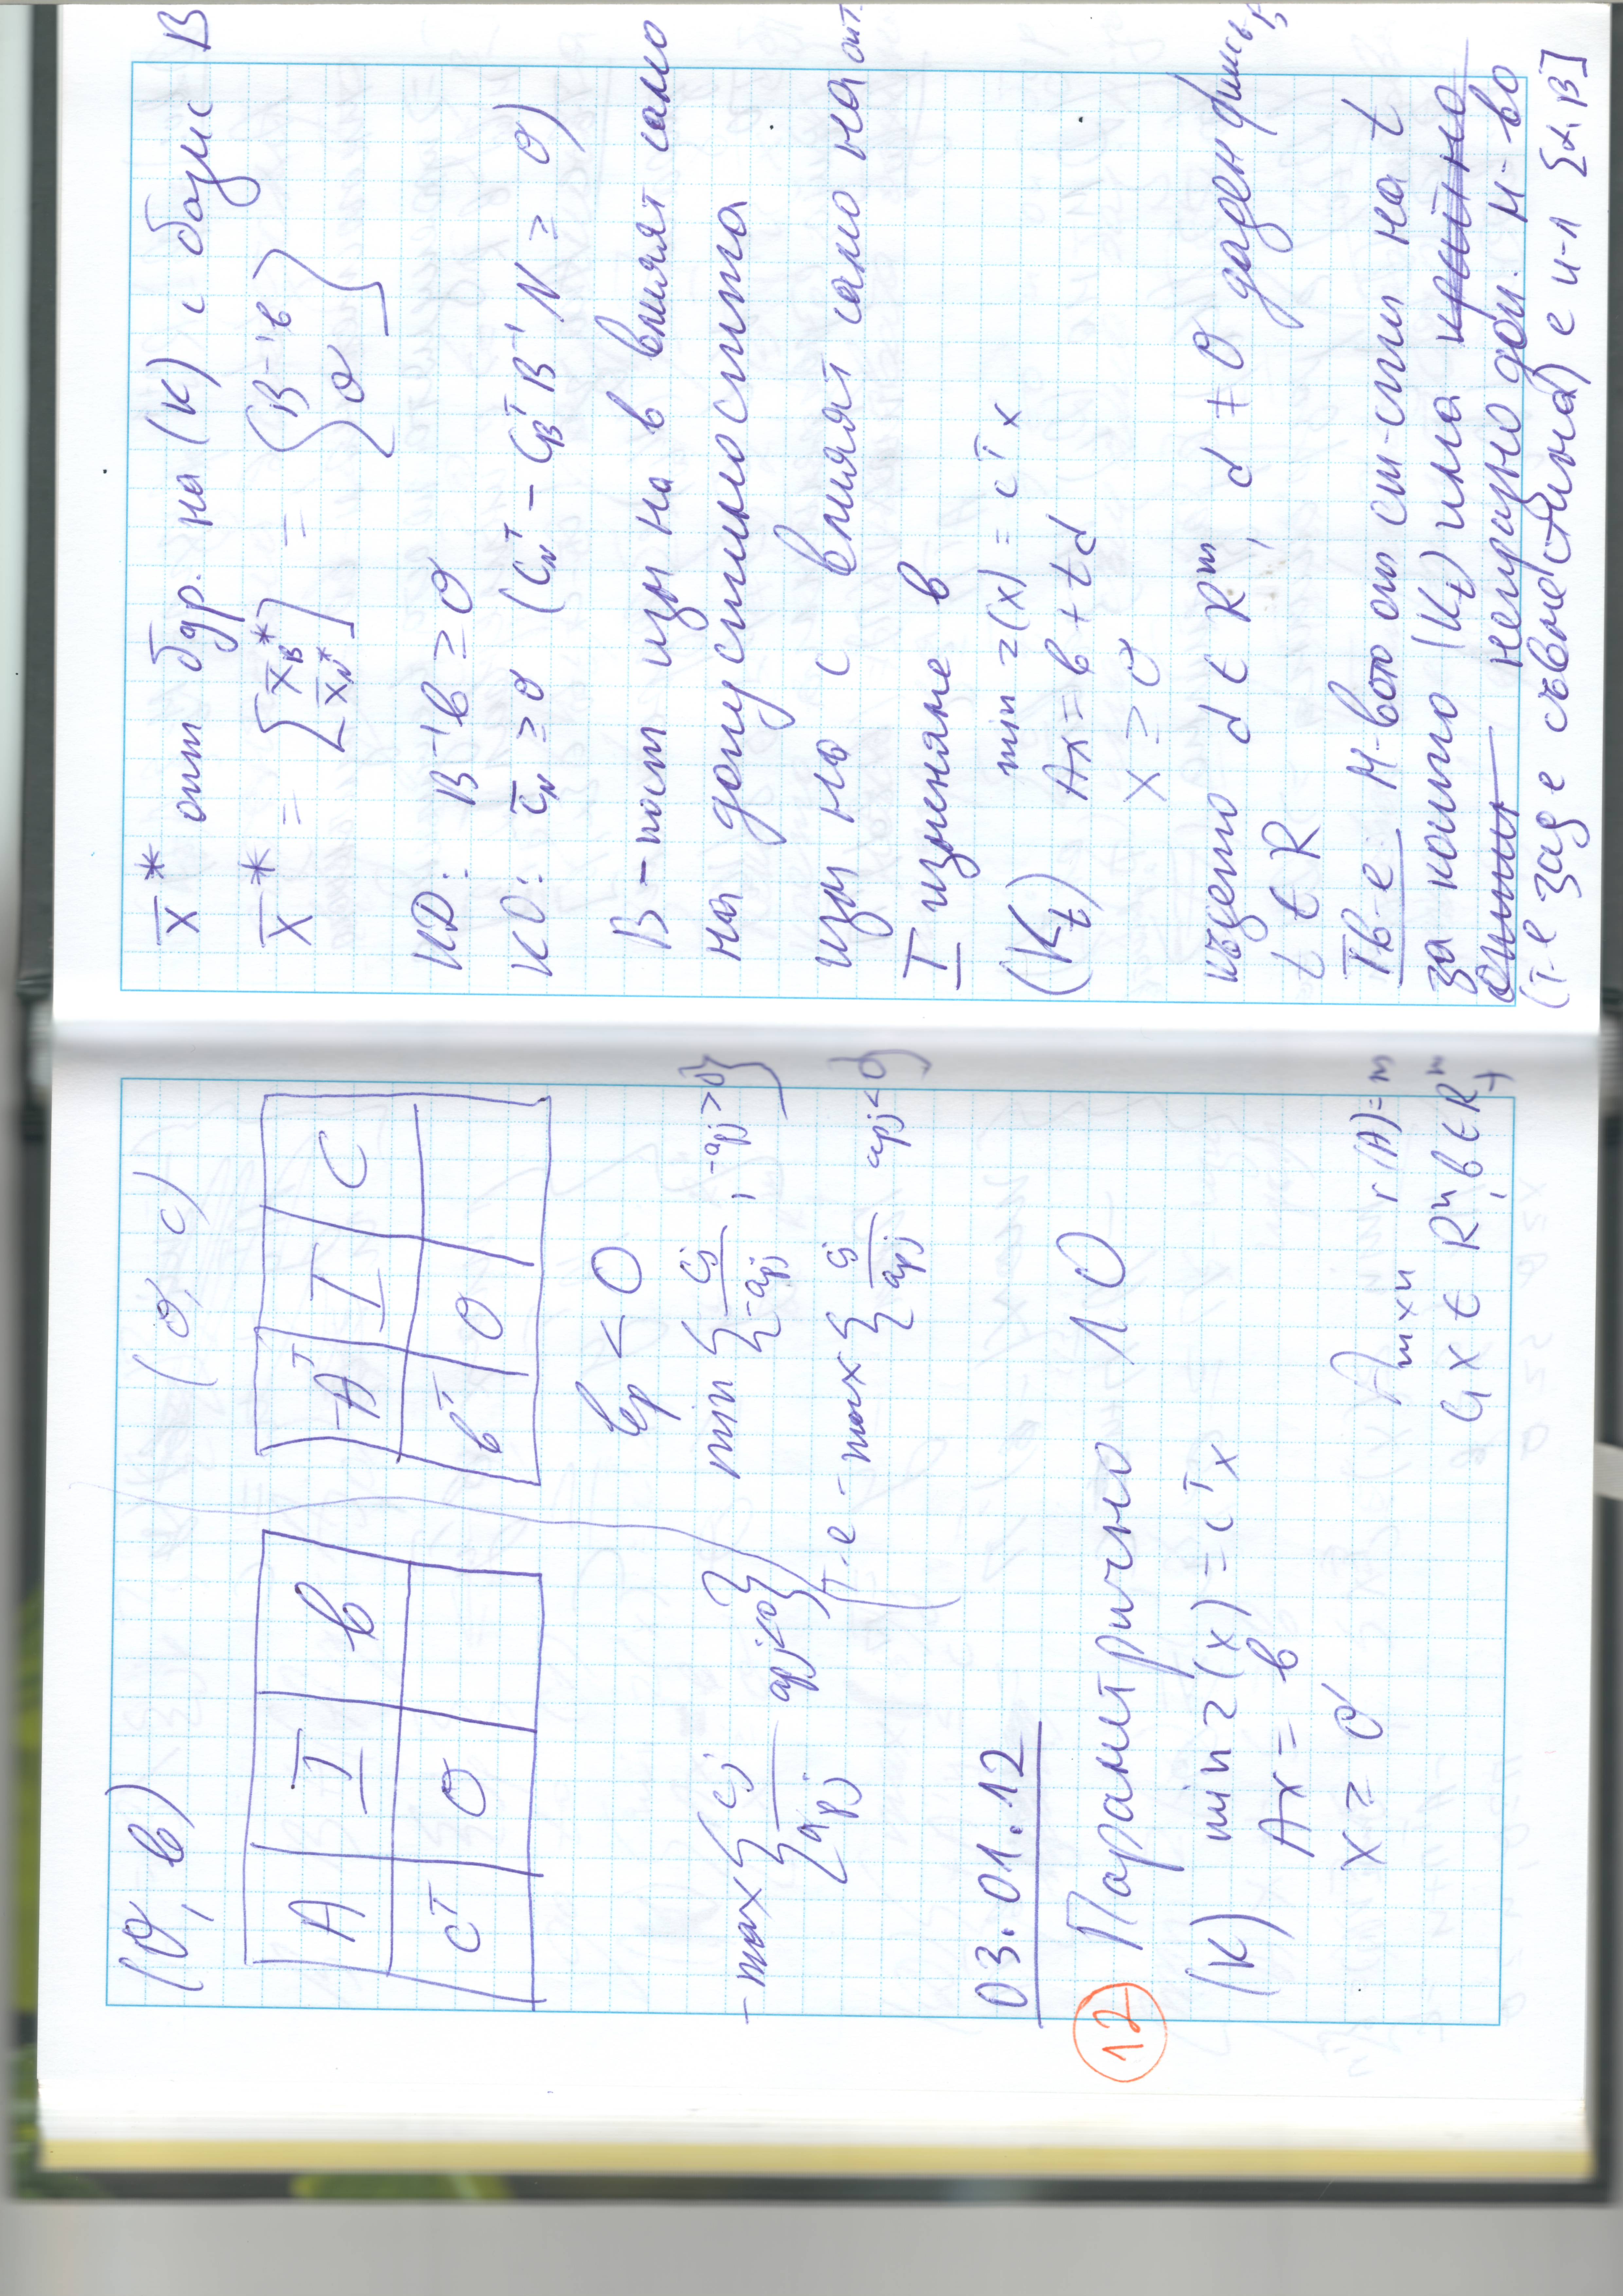 (0, b)
A I b
cᵀ 0
- max { cj / apj apj<0 }
(0, c)
-Aᵀ I c
bᵀ 0
bp < 0
min { cj / -apj , -apj>0 }
т.е - max { cj / apj apj<0 }
03.01.12
12 Параметрично ЛО
(K) min z(x) = cᵀx
Ax = b
x ≥ 0
A m×n r(A)=m
c, x ∈ Rⁿ, b ∈ R₊ᵐ
x̄* опт бдр. на (K) с базис B
x̄* = [ x̄B* x̄N* ] = [ B⁻¹b 0 ]
КД: B⁻¹b ≥ 0
КО: c̄N ≥ 0 (cNᵀ - cBᵀB⁻¹N ≥ 0)
B-пост изм на b влияят само
на допустимостта
изм на c влияят само на опт.
I изменяме b
(Kt) min z(x) = cᵀx
Ax = b + td
x ≥ 0
където d ∈ Rᵐ, d ≠ 0 даден фикс. в-р
t ∈ R
Тв-е: М-вото от ст-сти на t
за които (Kt) има крайно
оптим непразно доп. м-во
(т-е зад е съвместима) е и-л [α, β]